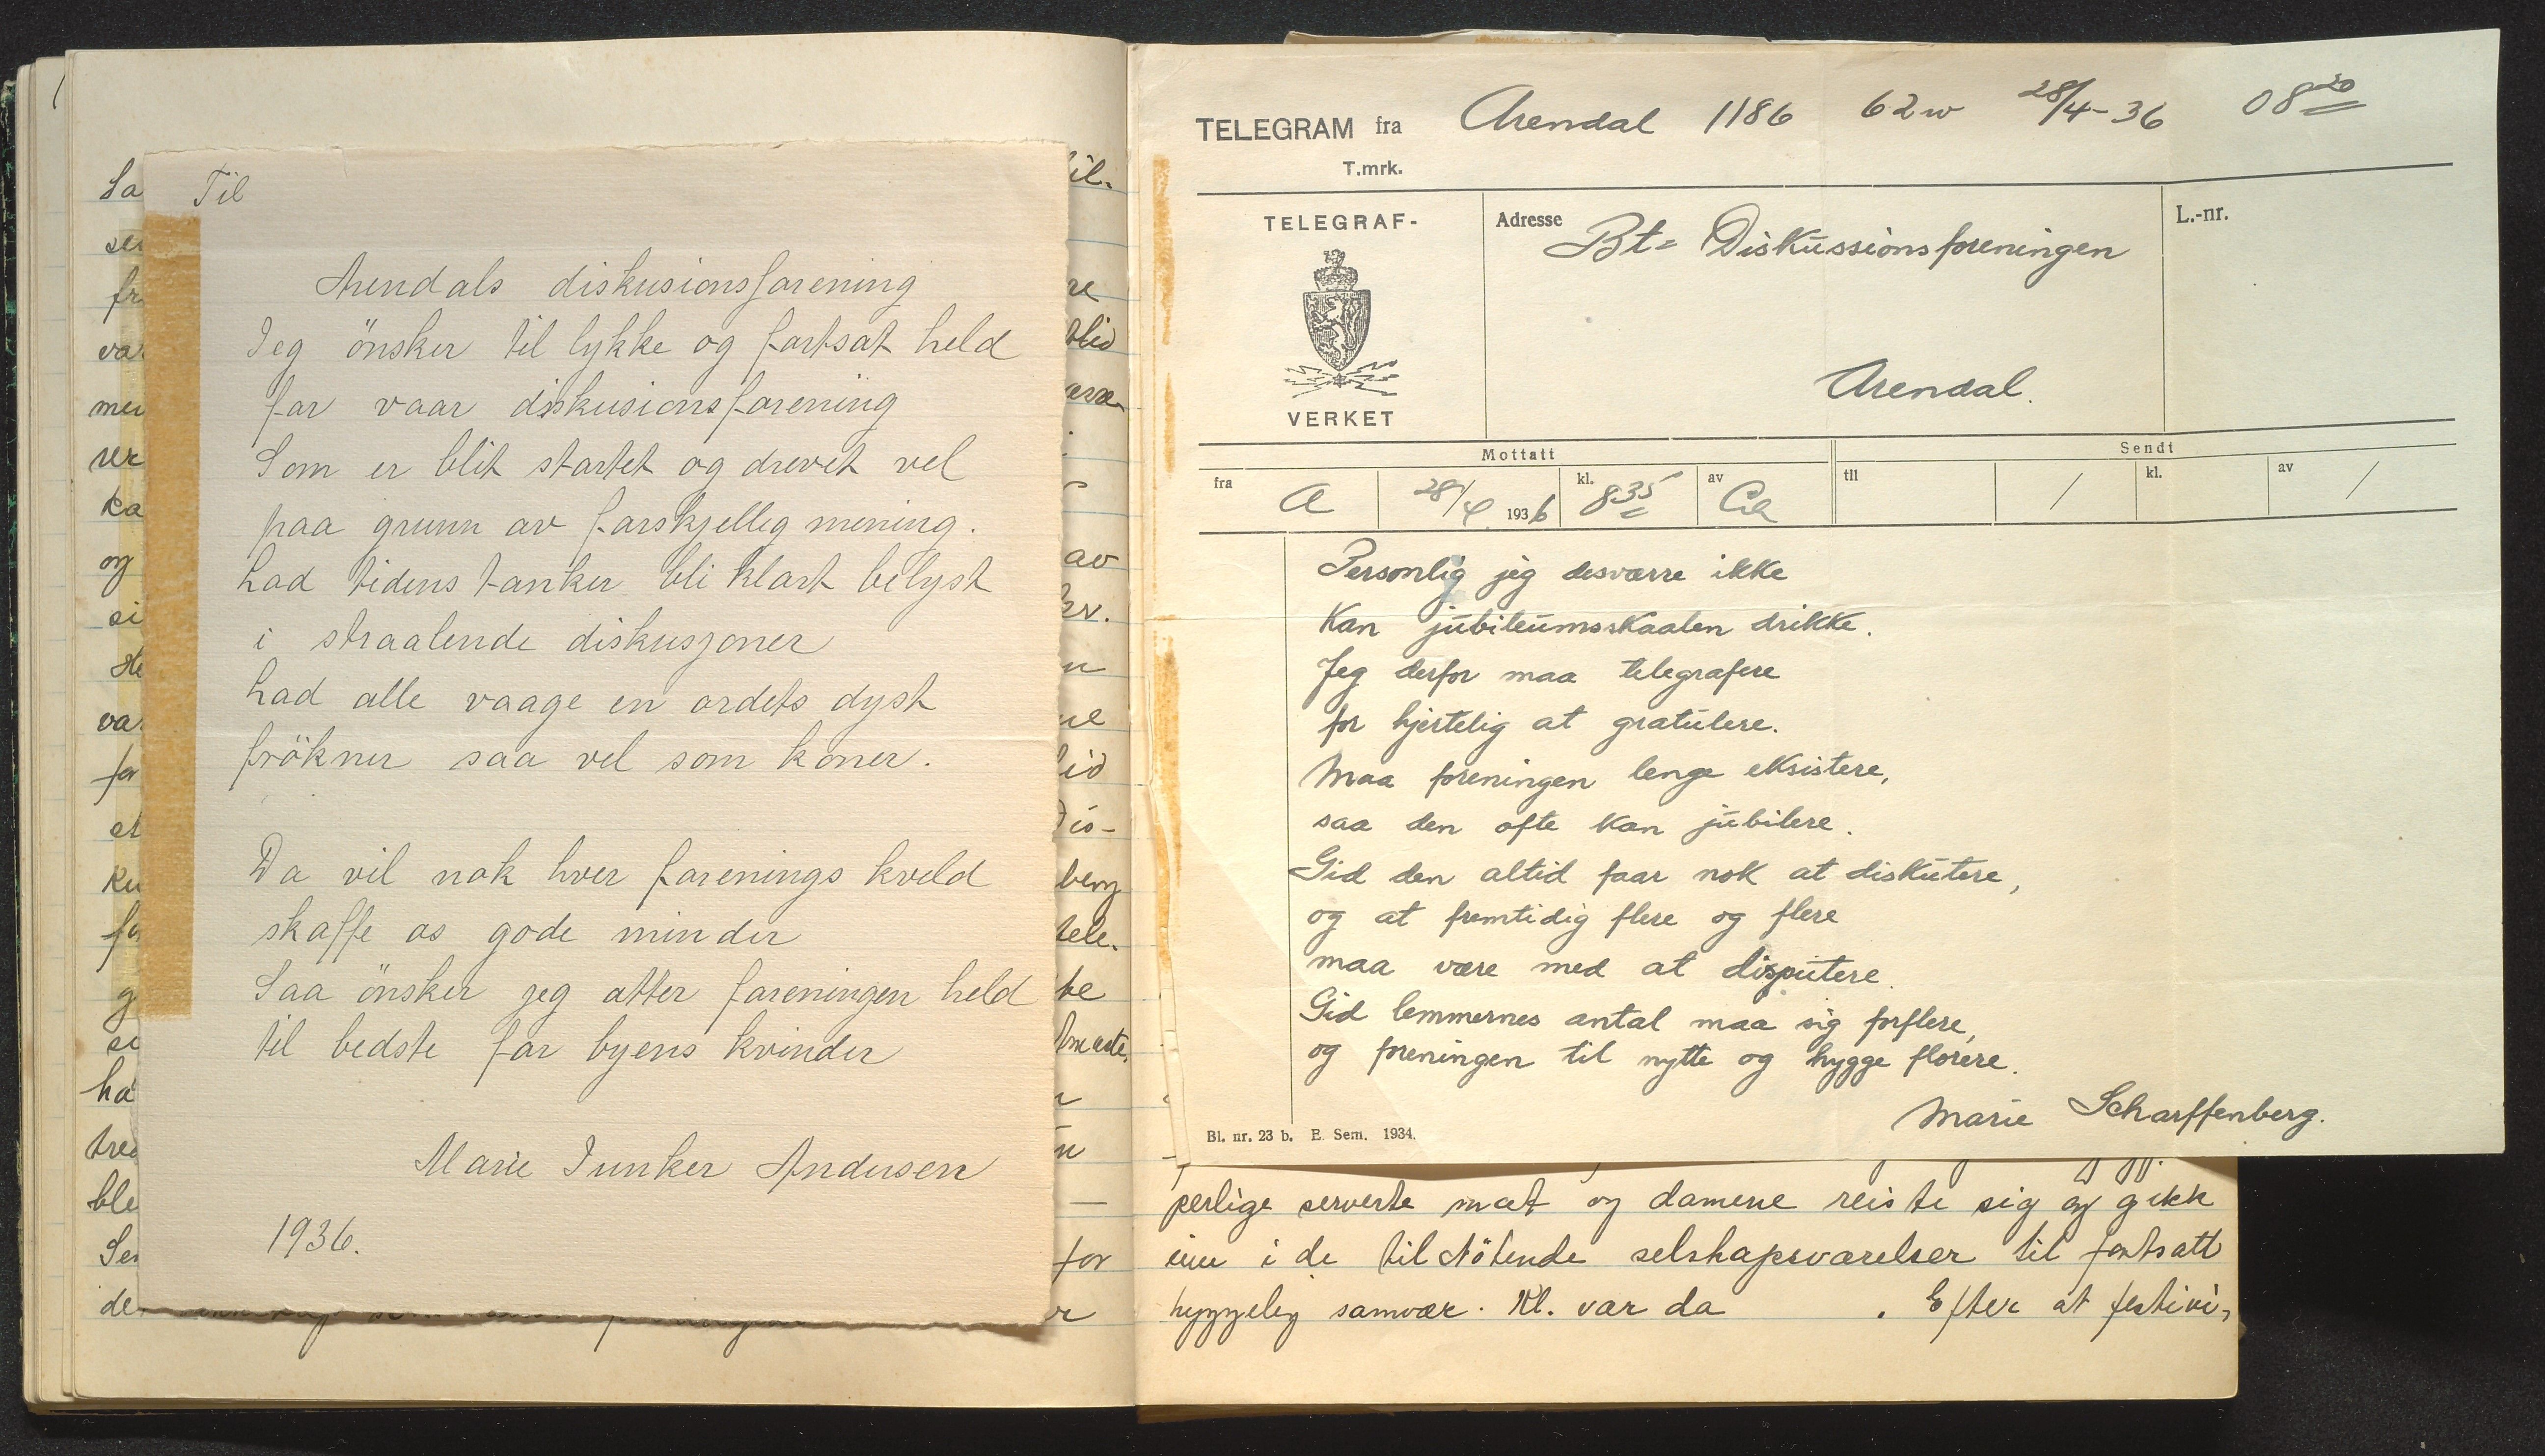 Til
Arendals diskusionsforening
Jeg önsker til lykke og fortsat held
for vaar diskusionsforening
Som er blit startet og drevet vel
paa grunn av forskjellig mening.
Lad tidens tanker bli klart belyst
i straalende diskusjoner
Lad alle vaage en ordets dyst
frökner saa vel som koner.
Da vil nok hver forenings kveld
skaffe os gode minder
Saa önsker jeg atter foreningen held
til bedste for byens kvinder
Marie Junker Andersen
1936.
TELEGRAM fra Arendal 1186 62w 28/4-36 08 20
T.mrk.
TELEGRAF-
VERKET
Adresse
Bt= Diskussionsforeningen
Arendal.
L.-nr.
Mottatt
Sendt
fra A 28/4 1936 kl. 8 35 av
til / kl. av /
Personlig jeg desværre ikke
kan jubileumsskaalen drikke.
Jeg derfor maa telegrafere
for hjertelig at gratulere.
Maa foreningen lenge eksistere,
saa den ofte kan jubilere.
Gid den altid faar nok at diskutere,
og at fremtidig flere og flere
maa være med at disputere.
Gid lemmernes antal maa sig forflere,
og foreningen til nytte og hygge florere.
Marie Scharffenberg.
Bl. nr. 23 b. E. Sem. 1934.
perlige serverte mat og damene reiste sig og gikk
inn i de tilstötende selskapsværelser til fortsatt
hyggelig samvær. Kl. var da . Efter at festivi-